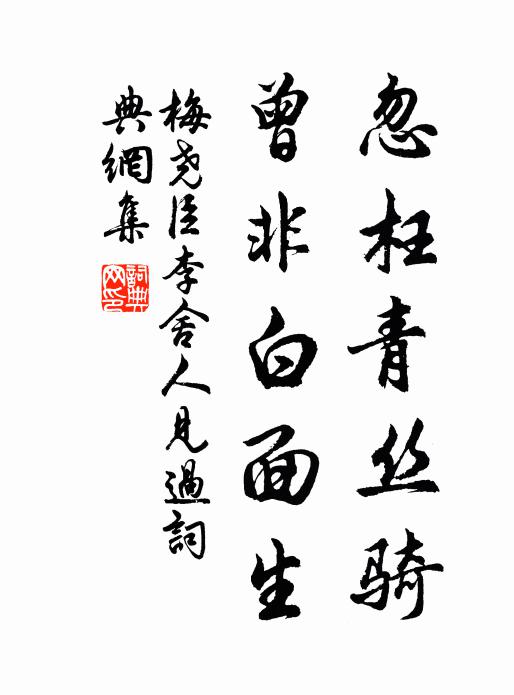 忽枉青丝骑
曾非白面生
梅尧臣李舍人见過詞
典網集
詞典网印